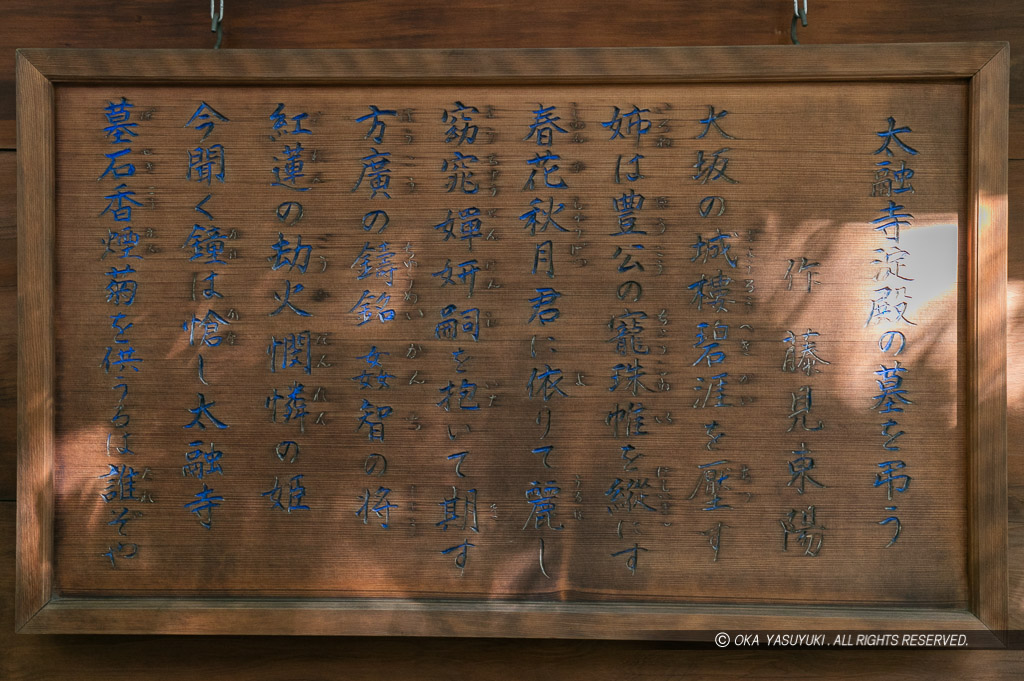 太融寺淀殿の墓を弔う
作 藤見東陽
大坂の城樓碧涯を壓す
姉は豊公の寵珠帷を縱にす
春花秋月君に依りて麗し
窈窕嬋妍嗣を抱いて期す
方廣の鋳銘姦智の将
紅蓮の劫火憫憐の姫
今聞く鐘は愴し太融寺
墓石香煙菊を供うるは誰ぞや
© OKA YASUYUKI. ALL RIGHTS RESERVED.